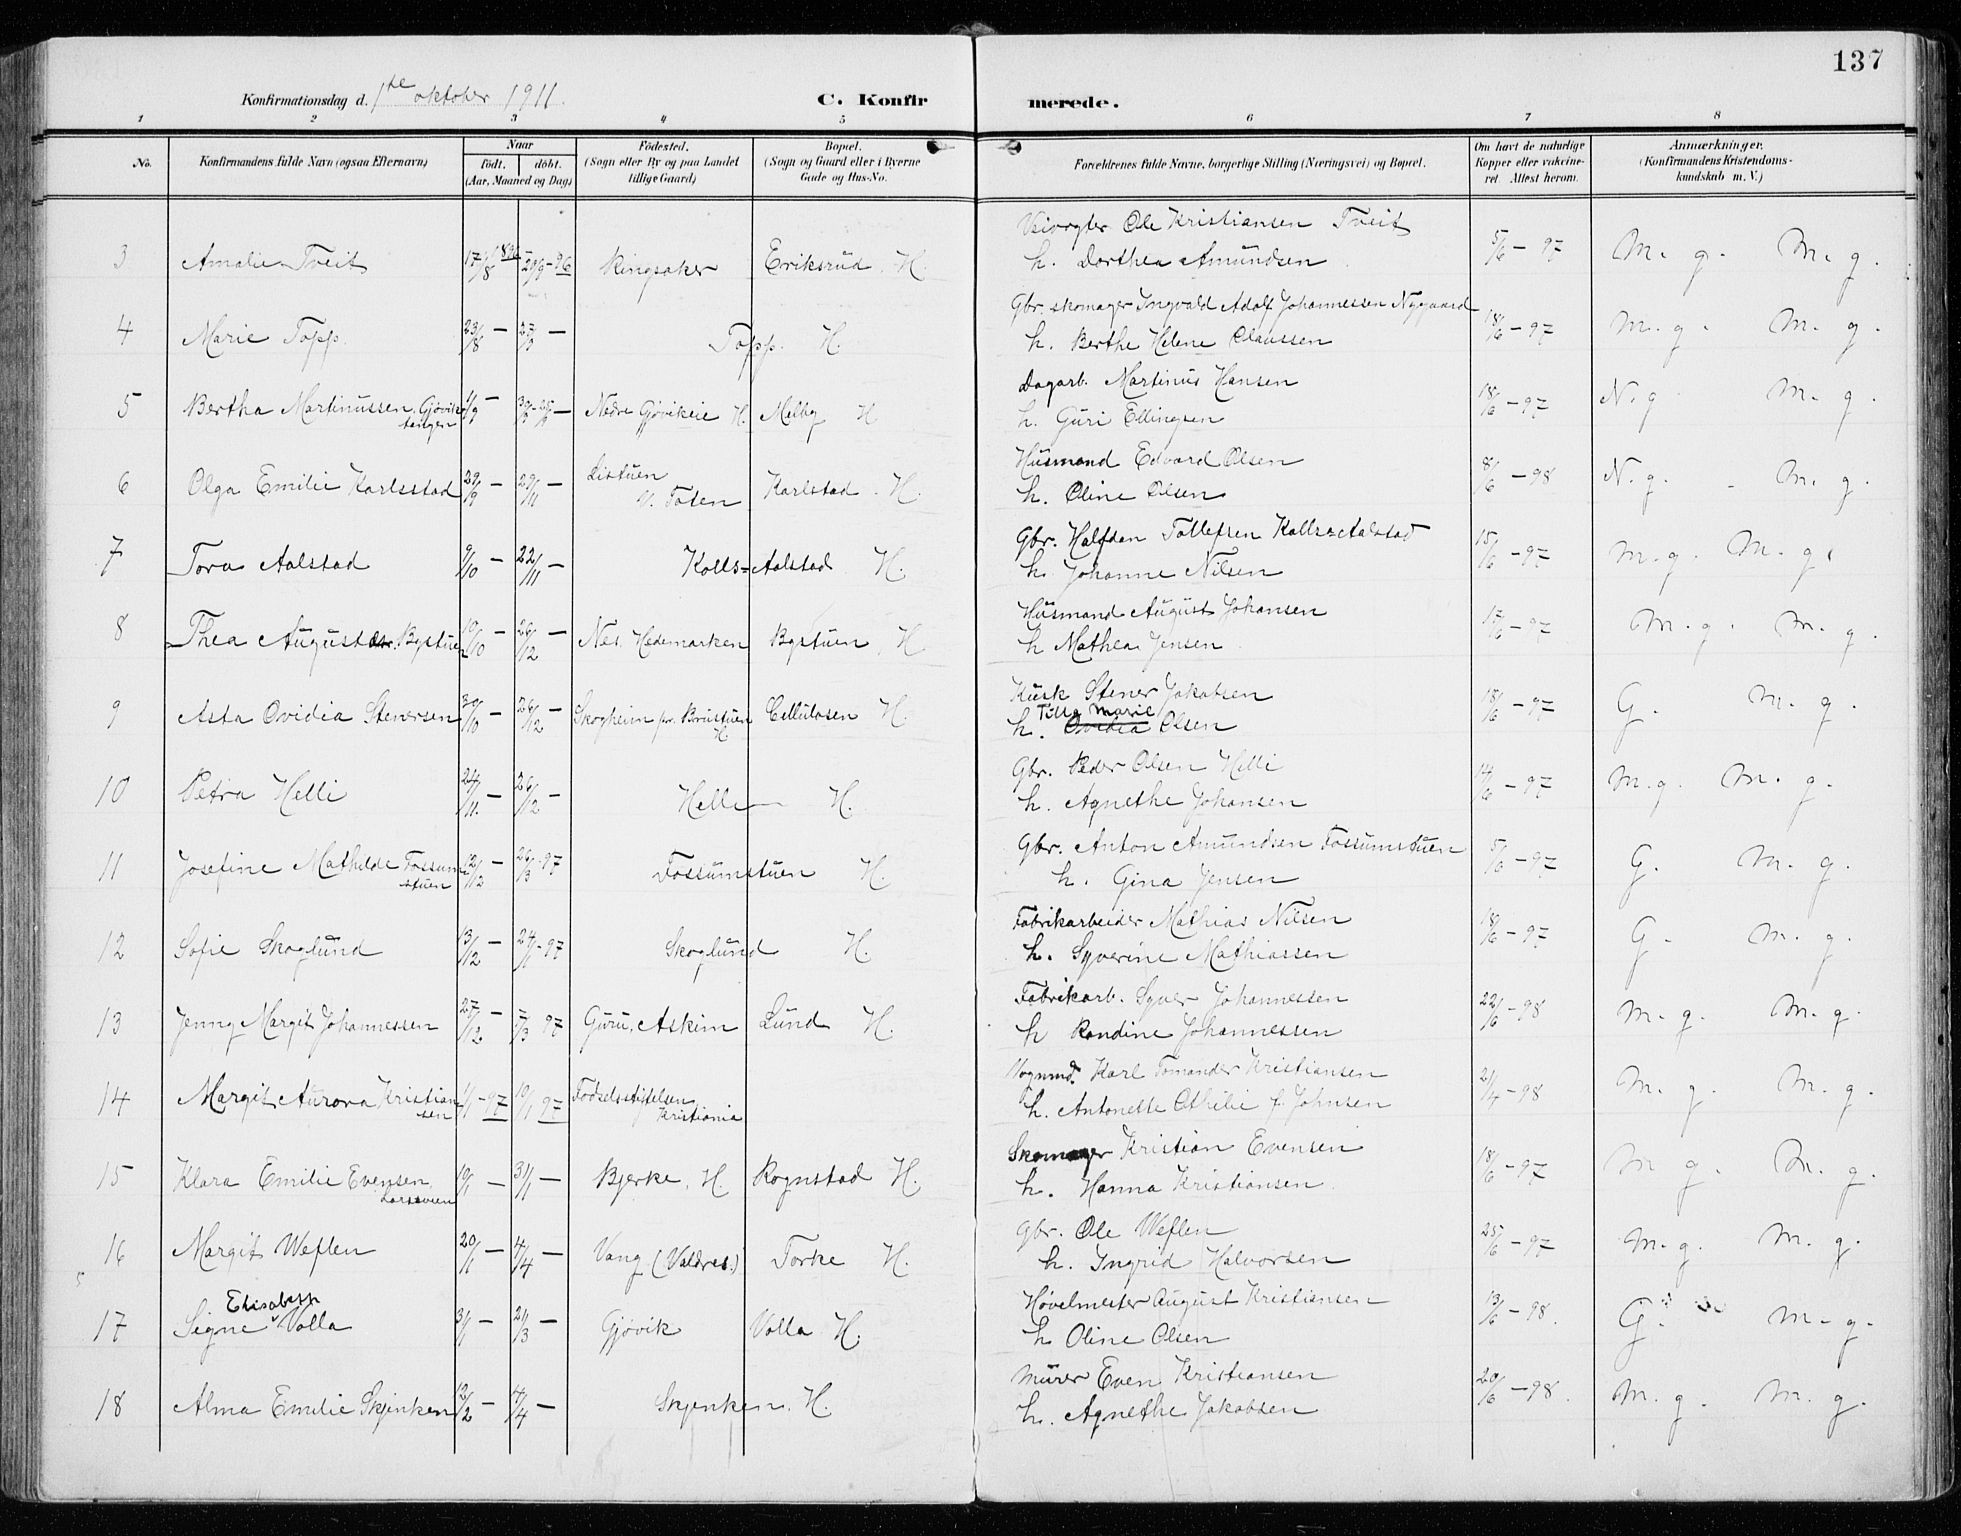 137
Konfirmationsdag d. 1te oktober 1911.
C. Konfirmerede.
1 2 3 4 5 6 7 8
No. Konfirmandens fulde Navn (ogsaa Efternavn) Naar født. døbt. (Aar, Maaned og Dag) Fødested. (Sogn eller By og paa Landet tillige Gaard) Bopæl. (Sogn og Gaard eller i Byerne Gade og Hus-No. Forældrenes fulde Navne, borgerlige Stilling (Næringsvei) og Bopæl. Om havt de naturlige Kopper eller vakcineret. Attest herom. Anmærkninger. (Konfirmandens Kristendomskundskab m. V.)
3 Amalie Tveit 17/8 1896 29/9-96 Ringsaker Eriksrud H. Ole Kristiansen Tveit 5/6-97 M. g. M. g.
h. Dorthea Amundsen
4 Marie Topp. 23/8 - 27/9 - Topp. H. Gbr. skomager Ingvald Adolf Johannessen Nygaard 18/6-97 M. g. M. g.
h. Berthe Helene Olaussen
5 Bertha Martinussen, Gjøvik- /9 - Nedre Gjøvikeie H. Melby H Dagarb. Martinus Hansen 18/6-97 N. g M. g.
tangen h. Guri Ellingsen
6 Olga Emilie Karlsstad 29/9 - 29/11 - Listuen V. Toten Karlstad H. Husmand Edvard Olsen 8/6-98 N. g. M. g.
h. Oline Olsen
7 Tora Aalstad 9/10 - 22/11 - Kolls=Aalstad H. Gbr. Halfdan Tollefsen Kolls=Aalstad 15/6-97 M. g. M. g.
h. Johanne Nilsen
8 Thea August Bystuen 10/10 - 26/12 - Nes, Hedemarken Bystuen H Husmand August Johansen 17/6-97 M. g. M. g.
h Mathea Jensen
9 Asta Ovidia Stenersen 30/10 - 26/12 - Skogheim pr. Brustuen H Cellulosen H. Kusk Stener Jakobsen 18/6-97 G. M. g.
Tilla Marie
h. Ovidia Olsen
10 Petra Helli 24/11. - 26/12 - Helli H. Gbr. Peder Olsen Helli 14/6-97 M. g. M. g.
h. Agnethe Johansen
11 Josefine Mathilde Fossum- 12/12 - 26/3-97 Fossumstuen H. Gbr. Anton Amundsen Fossumstuen 5/6-97 G. M. g.
stuen h. Gina Jensen
12 Sofie Skoglund 13/12 - 24/1-97 Skoglund H. Fabrikarbeider Mathias Nilsen 18/6-97 G. M. g.
h. Syverine Mathiassen
13 Jenny Margit Johannessen 27/12 - 7/3 97 Guru, Askim Lund H. Fabrikarb. Syver Johannessen 22/6-98 M. g. M. g.
h Randine Johannessen
14 Margit Aurora Kristian- 1/1-97 10/1 97 Fødselsstiftelsen Kristiania Vognmd. Karl Tomander Kristiansen 21/4-98 M. g. M. g.
sen h. Antonette Othilie f. Johnsen
15 Klara Emilie Evensen, 10/1 - 31/1 - Bjerke, H. Rognstad H. Skomager Kristian Evensen 18/6-97 M g. M. g.
h. Hanna Kristiansen
16 Margit Weflen 20/1 - 4/4 - Vang (Valdres.) Torke H. Gbr. Ole Weflen 25/6-97 M. g. M. g.
h. Ingrid Halvorsen
Elisabeth
17 Signe Volla 31/1 - 21/3 - Gjøvik Volla H. Høvelmester August Kristiansen 13/6-98. G. M. g.
h Oline Olsen
18 Alma Emilie Skjenken 12/2 - 4/4 - Skjenken. H. Murer Even Kristiansen 20/6-98. M. g. M. g.
h. Agnethe Jakobsen